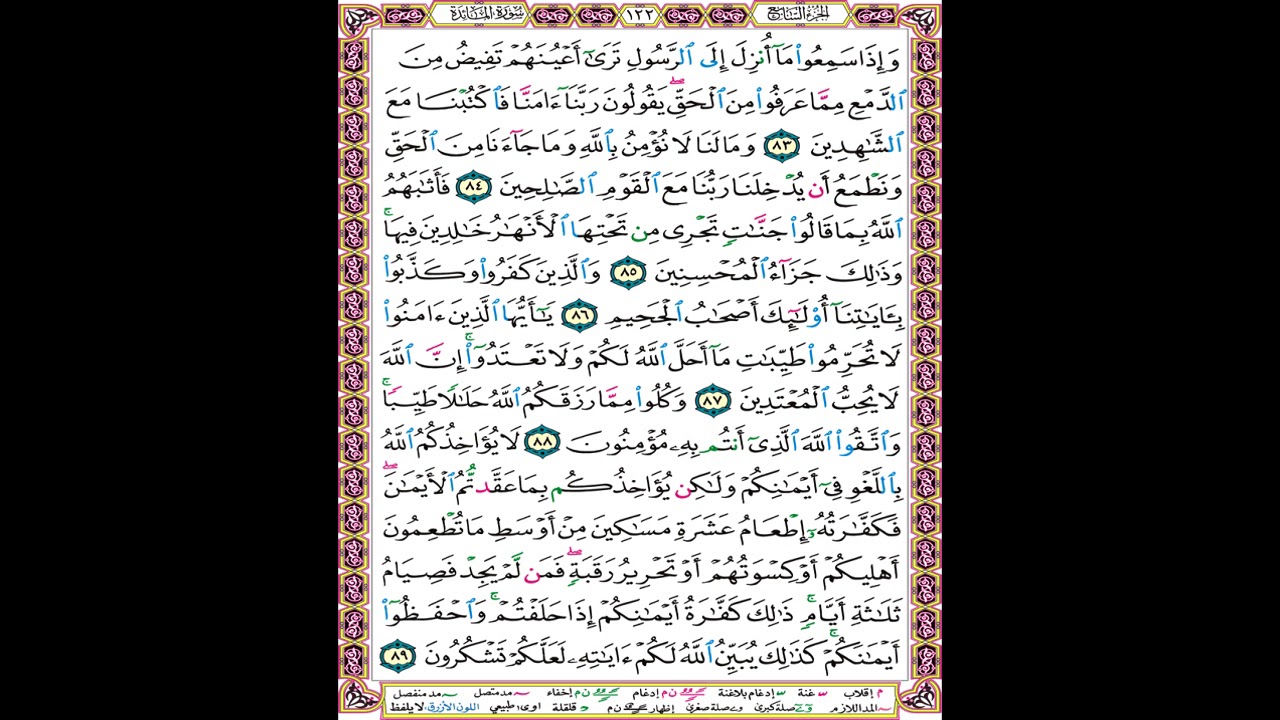 الجزء السابع
١٢٢
سورة المائدة
وَإِذَا سَمِعُوا۟ مَآ أُنزِلَ إِلَى ٱلرَّسُولِ تَرَىٰٓ أَعْيُنَهُمْ تَفِيضُ مِنَ
ٱلدَّمْعِ مِمَّا عَرَفُوا۟ مِنَ ٱلْحَقِّ ۖ يَقُولُونَ رَبَّنَآ ءَامَنَّا فَٱكْتُبْنَا مَعَ
ٱلشَّٰهِدِينَ ٨٣ وَمَا لَنَا لَا نُؤْمِنُ بِٱللَّهِ وَمَا جَآءَنَا مِنَ ٱلْحَقِّ
وَنَطْمَعُ أَن يُدْخِلَنَا رَبُّنَا مَعَ ٱلْقَوْمِ ٱلصَّٰلِحِينَ ٨٤ فَأَثَٰبَهُمُ
ٱللَّهُ بِمَا قَالُوا۟ جَنَّٰتٍ تَجْرِى مِن تَحْتِهَا ٱلْأَنْهَٰرُ خَٰلِدِينَ فِيهَا ۚ
وَذَٰلِكَ جَزَآءُ ٱلْمُحْسِنِينَ ٨٥ وَٱلَّذِينَ كَفَرُوا۟ وَكَذَّبُوا۟
بِـَٔايَٰتِنَآ أُو۟لَٰٓئِكَ أَصْحَٰبُ ٱلْجَحِيمِ ٨٦ يَٰٓأَيُّهَا ٱلَّذِينَ ءَامَنُوا۟
لَا تُحَرِّمُوا۟ طَيِّبَٰتِ مَآ أَحَلَّ ٱللَّهُ لَكُمْ وَلَا تَعْتَدُوٓا۟ ۚ إِنَّ ٱللَّهَ
لَا يُحِبُّ ٱلْمُعْتَدِينَ ٨٧ وَكُلُوا۟ مِمَّا رَزَقَكُمُ ٱللَّهُ حَلَٰلًا طَيِّبًا ۚ
وَٱتَّقُوا۟ ٱللَّهَ ٱلَّذِىٓ أَنتُم بِهِۦ مُؤْمِنُونَ ٨٨ لَا يُؤَاخِذُكُمُ ٱللَّهُ
بِٱللَّغْوِ فِىٓ أَيْمَٰنِكُمْ وَلَٰكِن يُؤَاخِذُكُم بِمَا عَقَّدتُّمُ ٱلْأَيْمَٰنَ ۖ
فَكَفَّٰرَتُهُۥٓ إِطْعَامُ عَشَرَةِ مَسَٰكِينَ مِنْ أَوْسَطِ مَا تُطْعِمُونَ
أَهْلِيكُمْ أَوْ كِسْوَتُهُمْ أَوْ تَحْرِيرُ رَقَبَةٍ ۖ فَمَن لَّمْ يَجِدْ فَصِيَامُ
ثَلَٰثَةِ أَيَّامٍ ۚ ذَٰلِكَ كَفَّٰرَةُ أَيْمَٰنِكُمْ إِذَا حَلَفْتُمْ ۚ وَٱحْفَظُوٓا۟
أَيْمَٰنَكُمْ ۚ كَذَٰلِكَ يُبَيِّنُ ٱللَّهُ لَكُمْ ءَايَٰتِهِۦ لَعَلَّكُمْ تَشْكُرُونَ ٨٩
م إقلاب غنة إدغام بلاغنة ن م إدغام ن م إخفاء مد متصل مد منفصل
المد اللازم صلة كبرى صلة صغرى إظهار ن م قلقلة اوى: طبيعي اللون الأزرق لا يلفظ